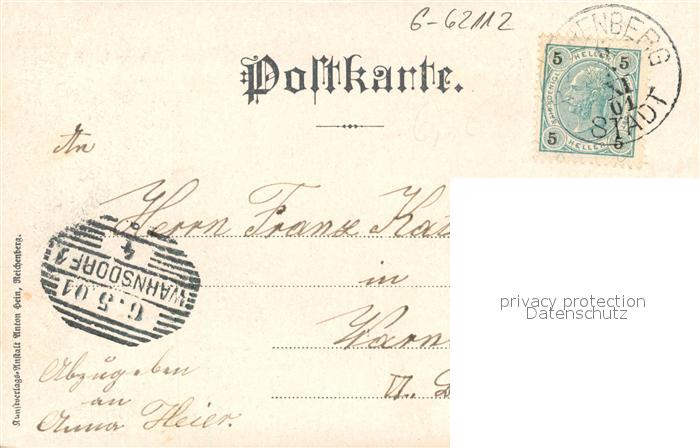 6-62112
Postkarte.
ENBERG
STADT
VI
01
8
5 HELLER 5
5 HELLER 5
An
Herrn Franz
in
VI.
WARNSDORF 1
6.5.01
4
Abzugeben
an
Anna Heier.
Kunstverlags-Anstalt Anton Hein, Reichenberg.
privacy protection
Datenschutz